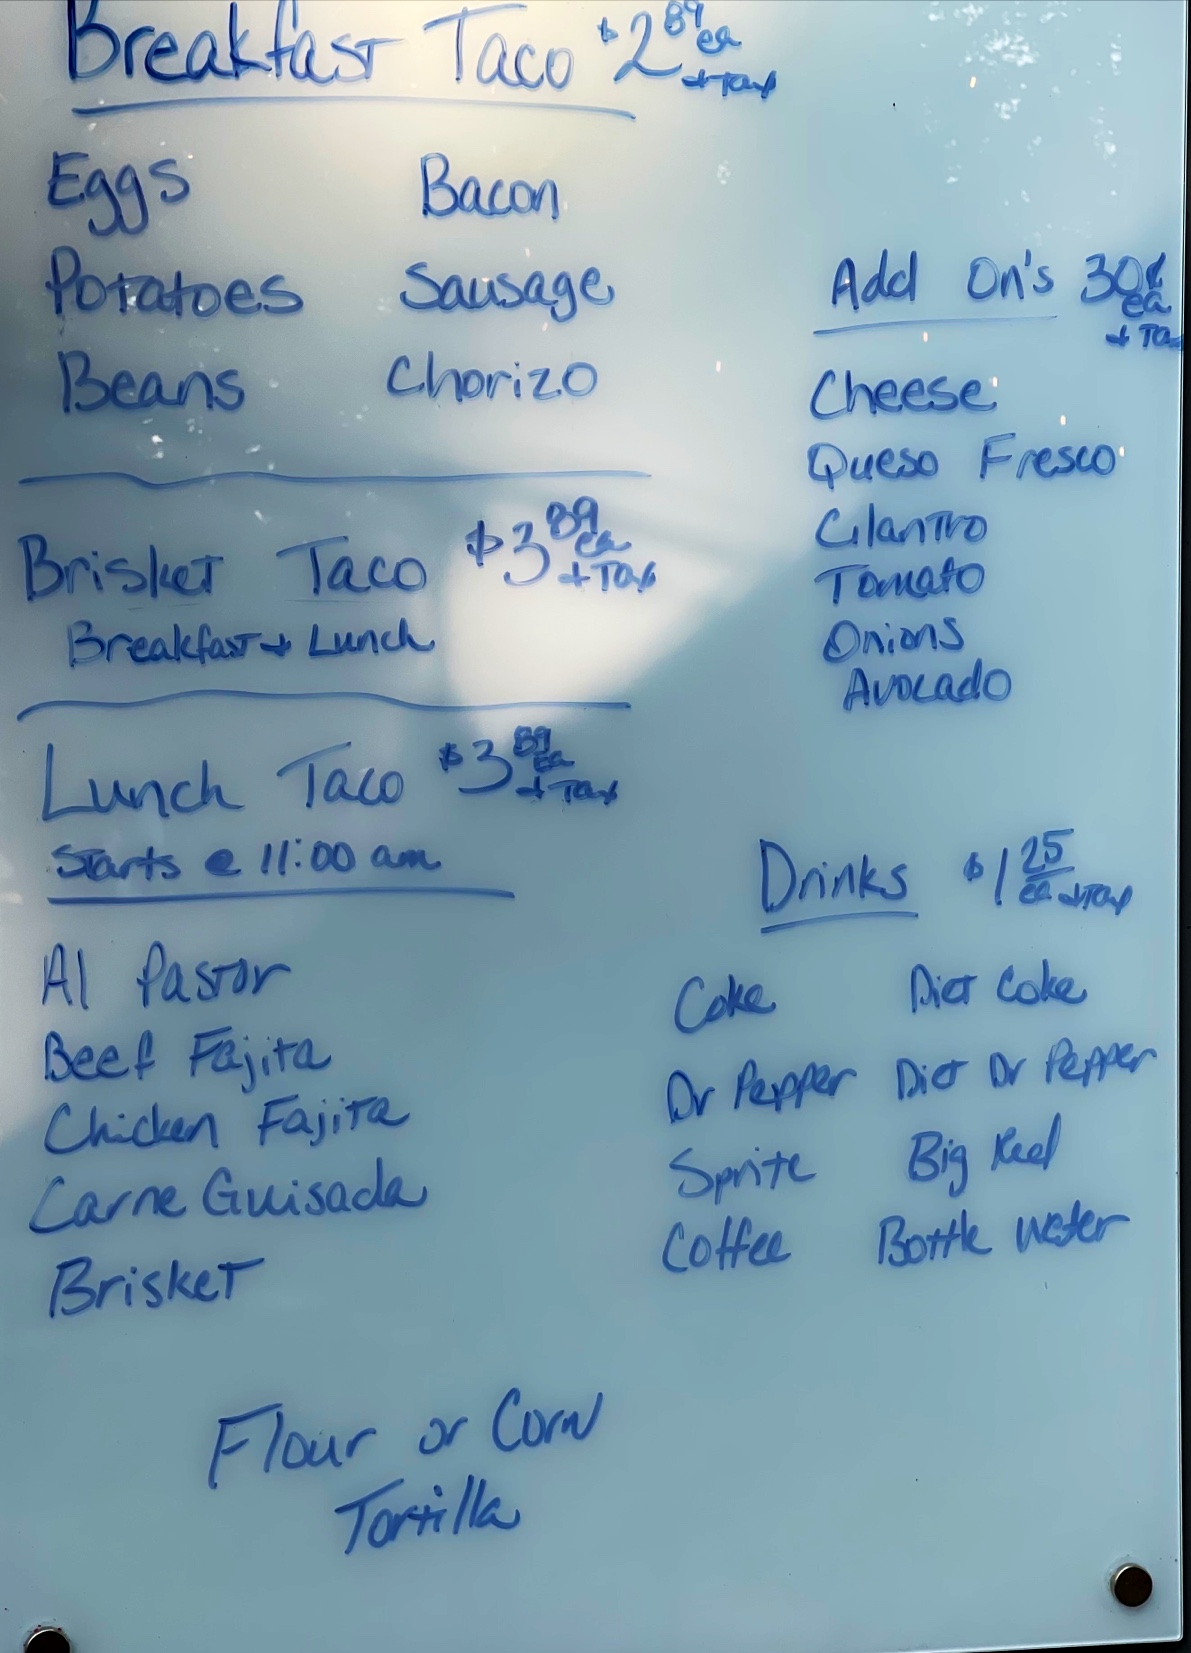 Breakfast Taco $2 89 ea + Tax
Eggs Bacon
Potatoes Sausage
Beans Chorizo
Brisket Taco $3 89 ea + Tax
Breakfast + Lunch
Lunch Taco $3 89 ea + Tax
Starts @ 11:00 am
Al Pastor
Beef Fajita
Chicken Fajita
Carne Guisada
Brisket
Add On's 30¢ ea + Tax
Cheese
Queso Fresco
Cilantro
Tomato
Onions
Avocado
Drinks $1 25 ea + Tax
Coke Diet Coke
Dr Pepper Diet Dr Pepper
Sprite Big Red
Coffee Bottle water
Flour or Corn
Tortilla